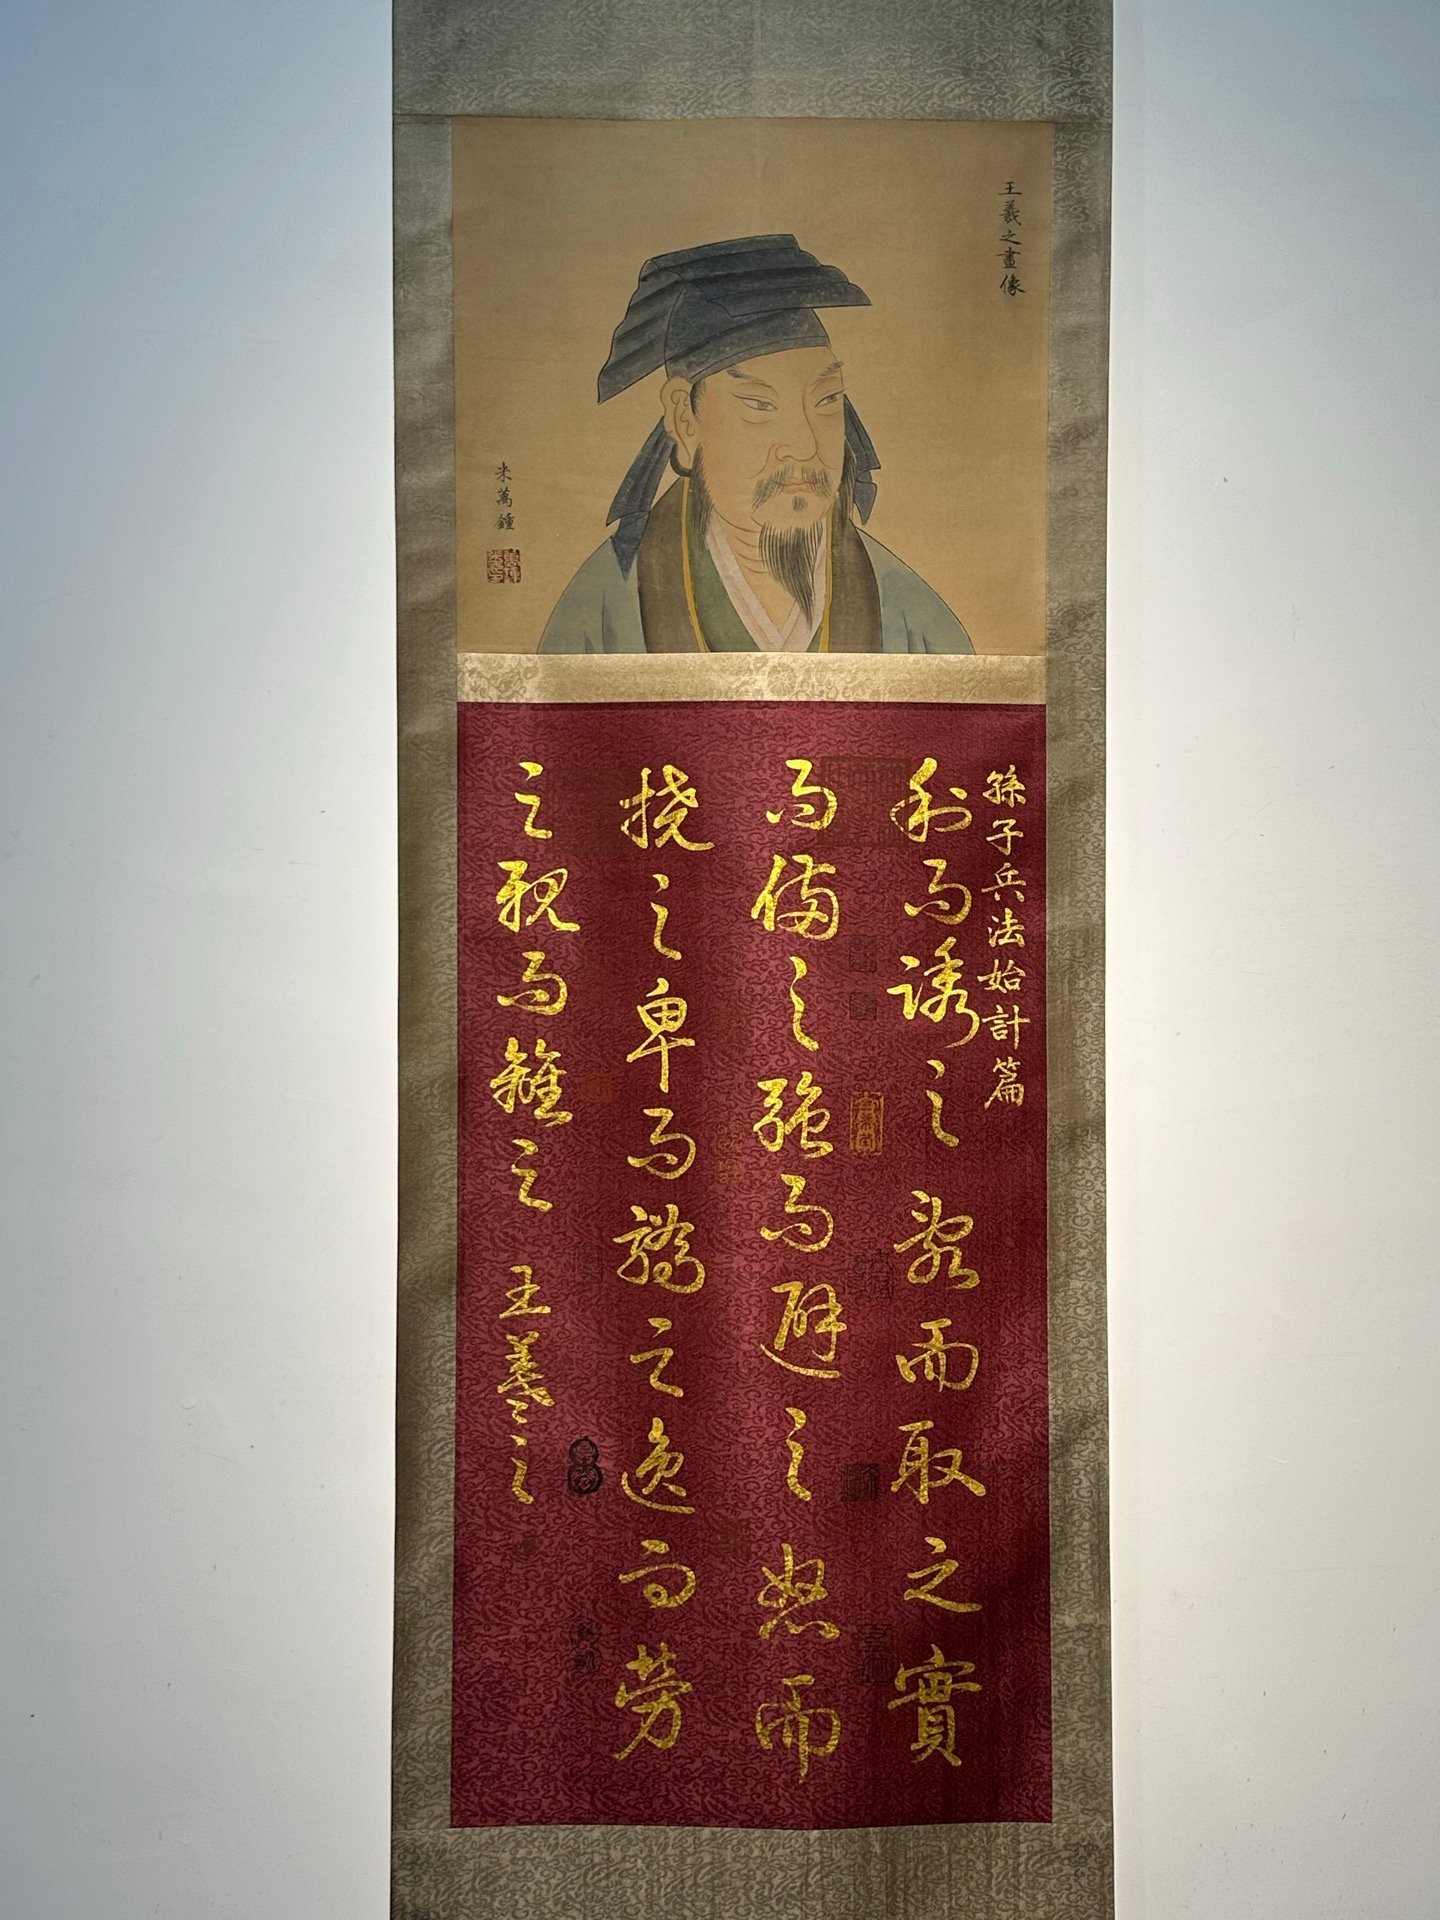 王羲之畫像
米萬鍾
孫子兵法始計篇
利而誘之亂而取之實
而備之強而避之怒而
撓之卑而驕之逸而勞
之親而離之 王羲之